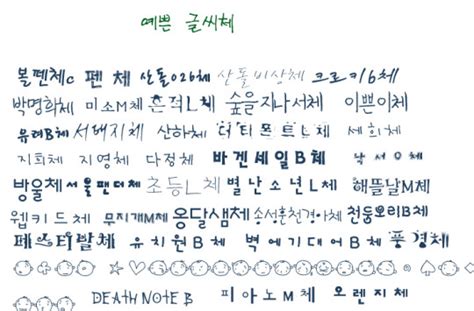 예쁜 글씨체
볼펜체c 펜 체 산돌026체 산돌비상체 크로키6체
박명화체 미소M체 흔적L체 숲을지나서체 이쁜이체
유리B체 서배지체 산하체 더티폰트L체 세희체
지희체 지영체 다정체 바겐세일B체 낙서O체
방울체 서울팬더체 초등L체 별난소년L체 해뜰날M체
웹키드체 무지개M체 옹달샘체 송성훈천경아체 천둥오리B체
페스티발체 유치원B체 벽에기대어B체 풍경체
DEATH NOTE B 피아노M체 오렌지체